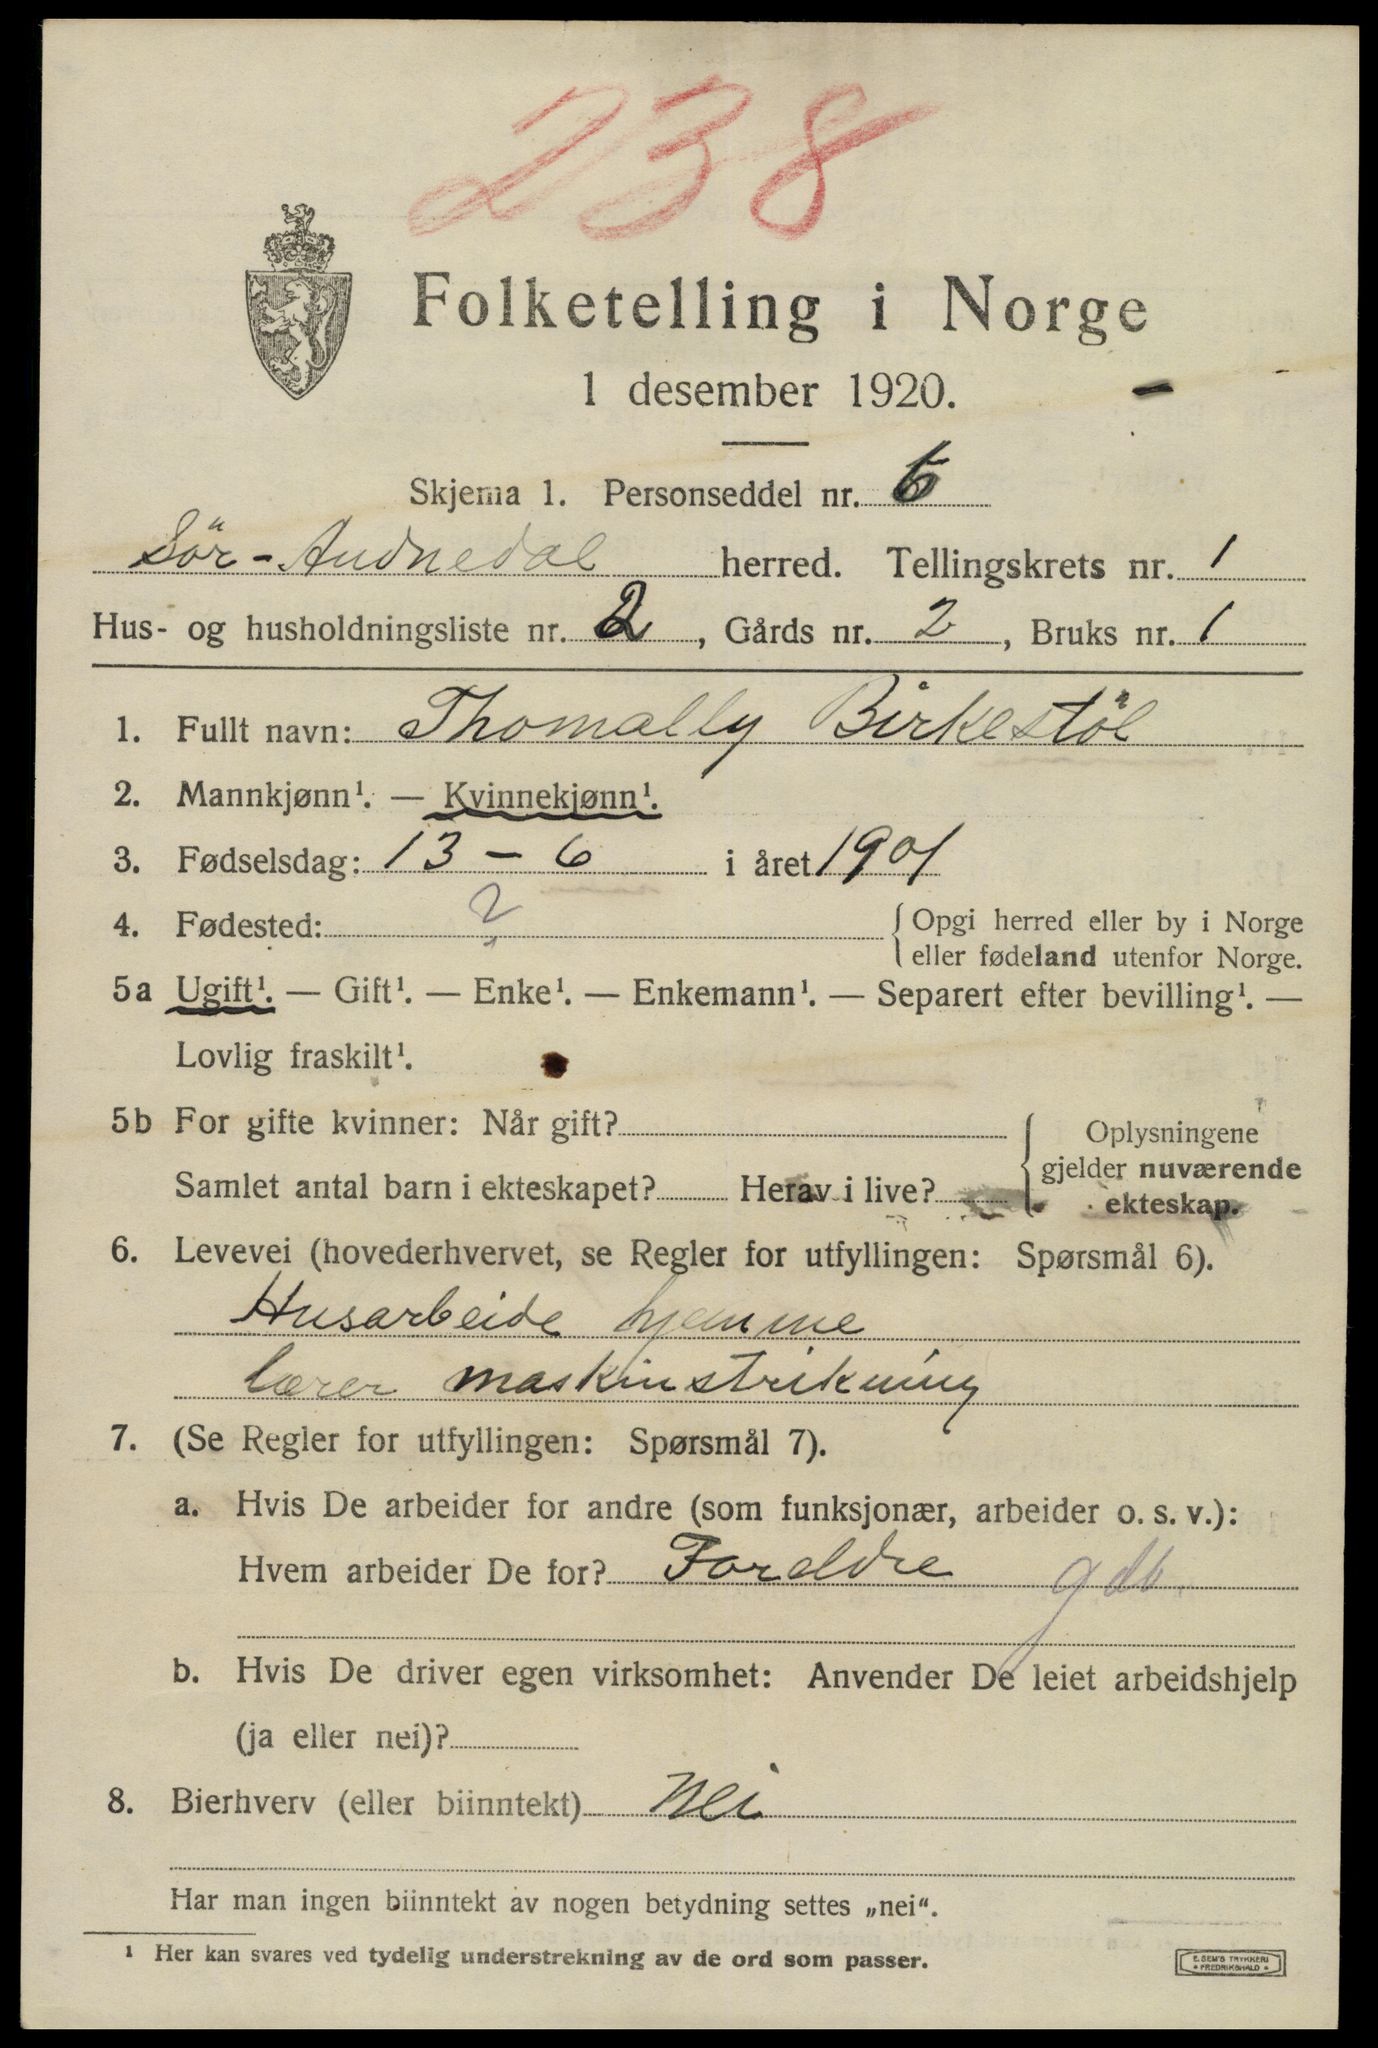 238
Folketelling i Norge
1 desember 1920.
Skjema 1. Personseddel nr. 6
Sör-Audnedal herred. Tellingskrets nr. 1
Hus- og husholdningsliste nr. 2, Gårds nr. 2, Bruks nr. 1
1. Fullt navn: Thomally Birkestöl
2. Mannkjønn¹. — Kvinnekjønn¹.
3. Fødselsdag: 13 - 6 i året 1901
4. Fødested: ? { Opgi herred eller by i Norge
eller fødeland utenfor Norge.
5a Ugift¹. — Gift¹. — Enke¹. — Enkemann¹. — Separert efter bevilling¹. —
Lovlig fraskilt¹.
5b For gifte kvinner: Når gift?
Samlet antal barn i ekteskapet? Herav i live?
Oplysningene
gjelder nuværende
ekteskap.
6. Levevei (hovederhvervet, se Regler for utfyllingen: Spørsmål 6).
Husarbeide hjemme
lærer maskinstrikning
7. (Se Regler for utfyllingen: Spørsmål 7).
a. Hvis De arbeider for andre (som funksjonær, arbeider o. s. v.):
Hvem arbeider De for? Foreldre gdb.
b. Hvis De driver egen virksomhet: Anvender De leiet arbeidshjelp
(ja eller nei)?
8. Bierhverv (eller biinntekt) Nei
Har man ingen biinntekt av nogen betydning settes „nei“.
¹ Her kan svares ved tydelig understrekning av de ord som passer.
E. SEM'S TRYKKERI
* FREDRIKSHALD *